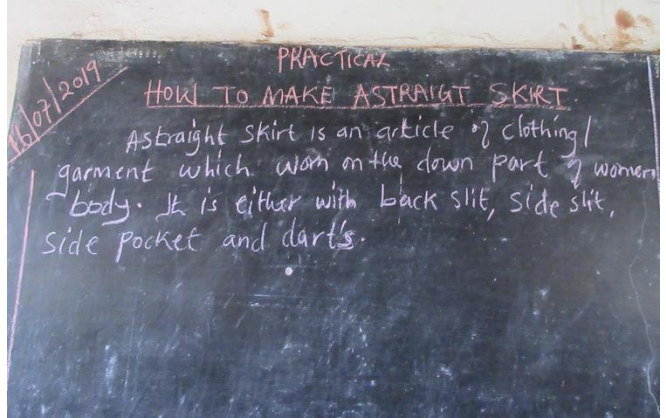 16/07/2019
PRACTICAL
HOW TO MAKE ASTRAIGT SKIRT.
Astraight skirt is an article of clothing/
garment which worn on the down part of women
body. It is either with back slit, side slit,
side pocket and dart's.